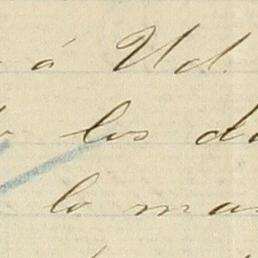 á Ud.
los da
lo mas